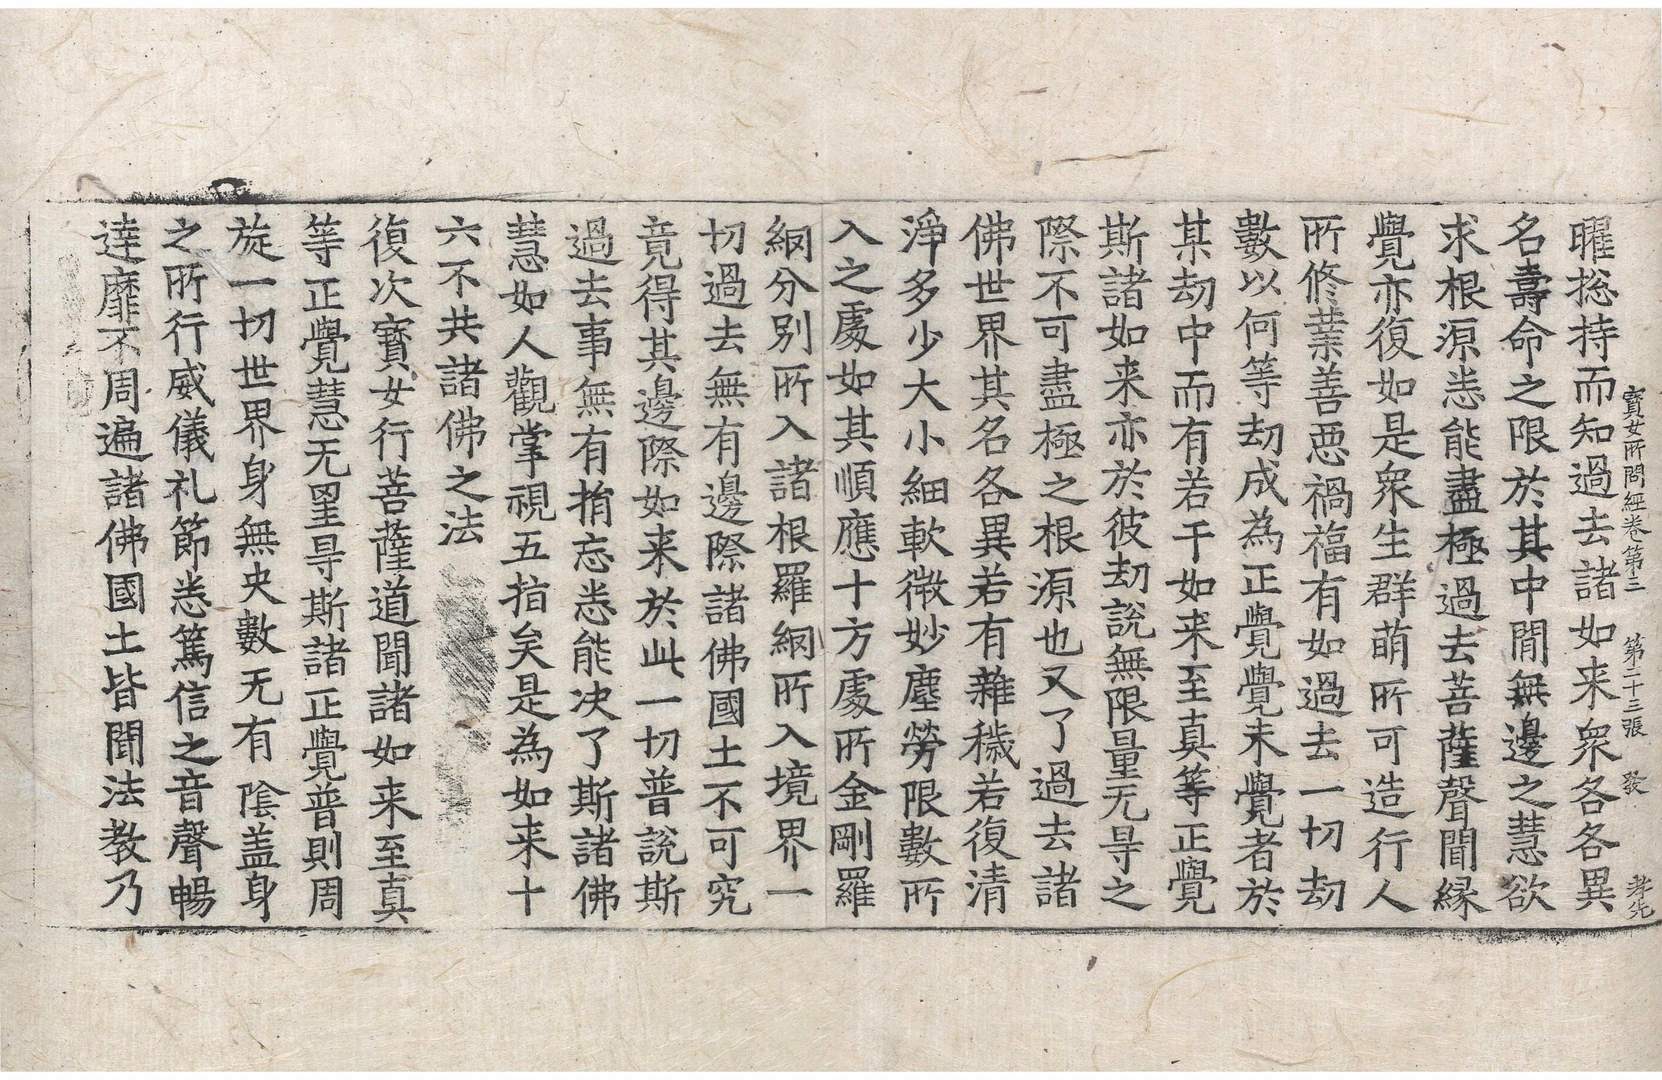 寶女所問經卷第三　第二十三張　發　孝先
曜捴持而知過去諸如来衆各各異
名壽命之限於其中閒無邊之慧欲
求根源悉能盡極過去菩薩聲聞縁
覺亦復如是衆生群萌所可造行人
所修業善惡禍福有如過去一切劫
數以何等劫成為正覺覺未覺者於
某劫中而有若干如来至真等正覺
斯諸如来亦於彼劫說無限量无㝵之
際不可盡極之根源也又了過去諸
佛世界其名各異若有雜穢若復清
淨多少大小細軟微妙塵勞限數所
入之處如其順應十方處所金剛羅
網分别所入諸根羅網所入境界一
切過去無有邊際諸佛國土不可究
竟得其邊際如来於此一切普說斯
過去事無有捎忘悉能决了斯諸佛
慧如人觀掌視五指矣是為如来十
六不共諸佛之法
復次寶女行菩薩道聞諸如来至真
等正覺慧无罣㝵斯諸正覺普則周
旋一切世界身無央數无有陰盖身
之所行威儀礼節悉篤信之音聲暢
達靡不周遍諸佛國土皆聞法教乃